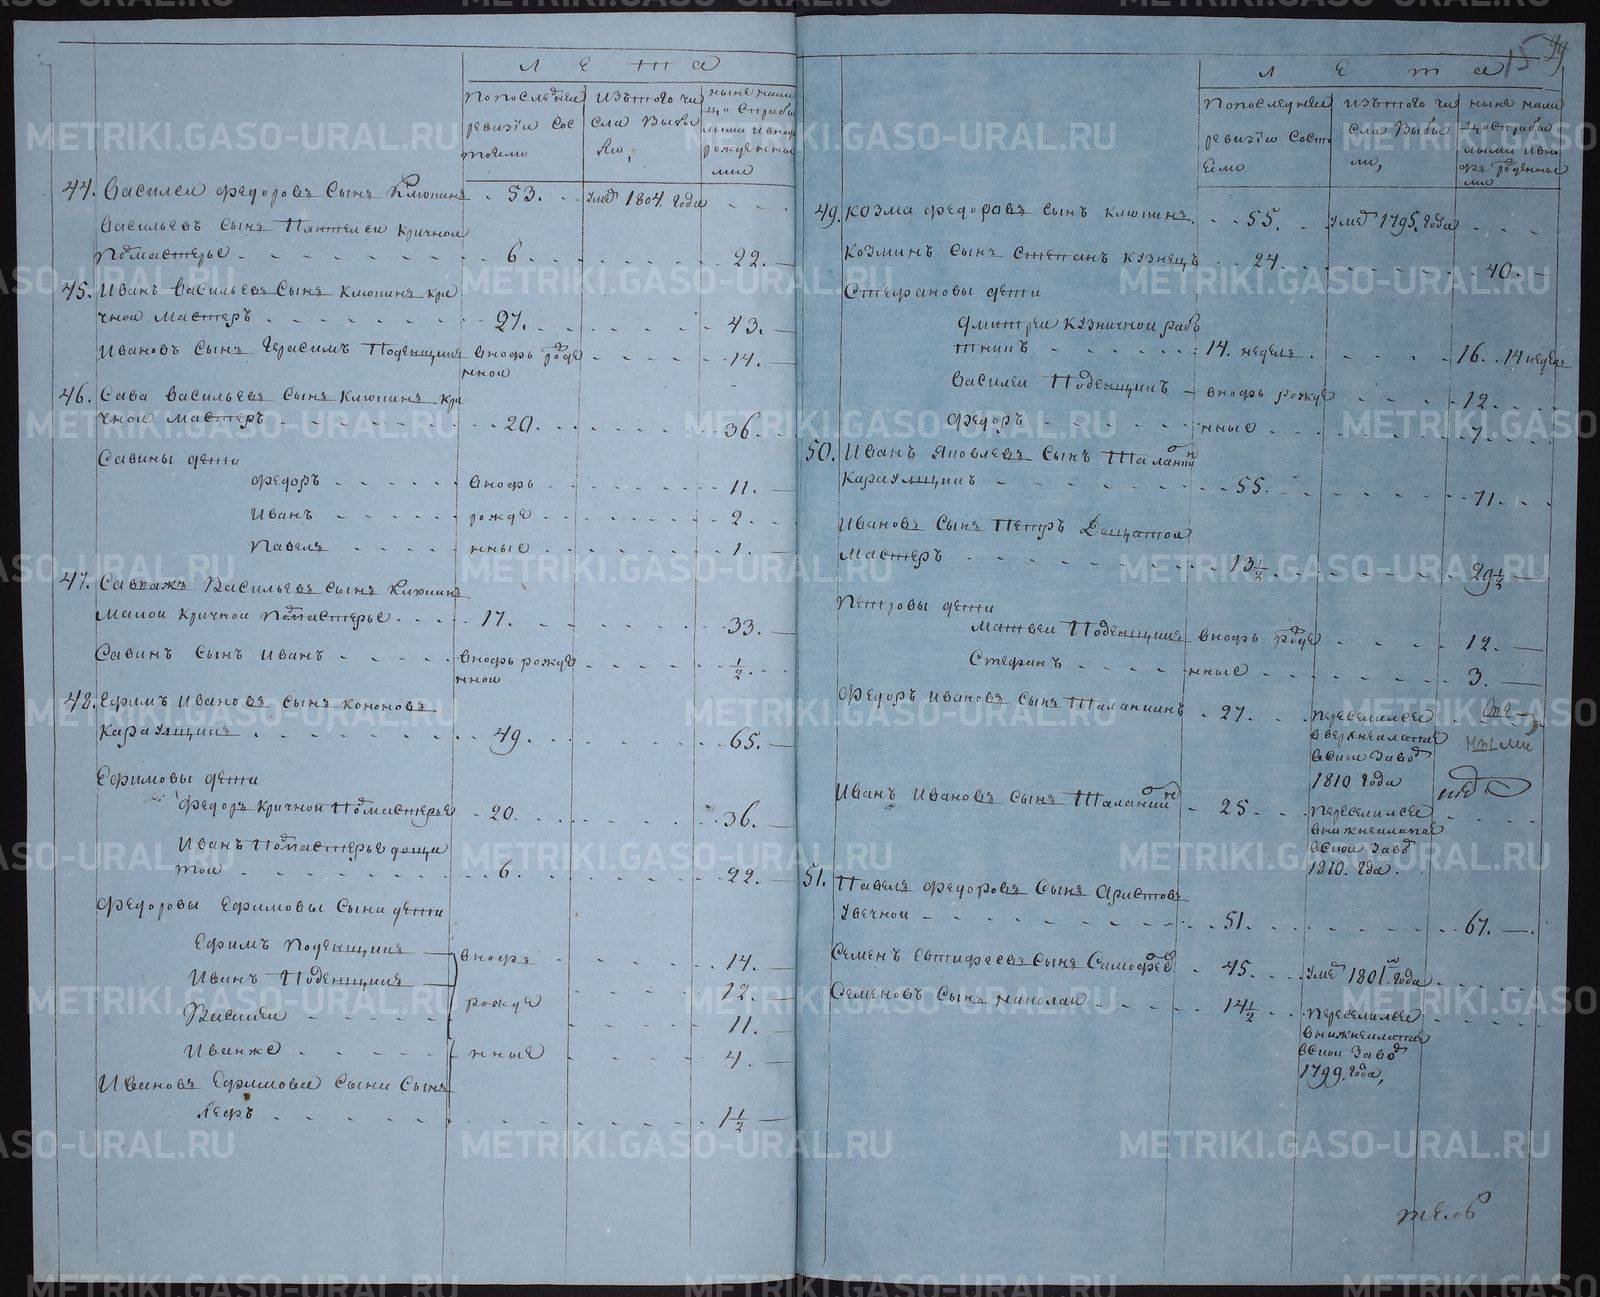 Лета
По последней ревизіи состояло
изъ того числа выбыло,
ныне налицо с прибылыми и вновь рожденными
44. Василеи Федоровъ Сынъ Клюпинъ 53. умер 1804 года
Васильевъ Сынъ Пантелеи кричнои
подмастерье 6. 22.
45. Иванъ Васильевъ Сынъ Клюпинъ кри
чнои мастеръ 27. 43.
Ивановъ Сынъ Герасимъ Поденщикъ вновь рожденнои 14.
46. Сава Васильевъ Сынъ Клюпинъ кри
чнои мастеръ 20. 36.
Савины дети
Федоръ вновь 11.
Иванъ рожде 2.
Павелъ нные 1.
47. Васильевъ Сынъ Клюпинъ
кричнои подмастерье 17. 33.
Савинъ Сынъ Иванъ вновь рожденнои ½
48. Ефимъ Ивановъ Сынъ Кононовъ
караулщикъ 49. 65.
Ефимовы дети
Федоръ кричнои подмастерье 20. 36.
Иванъ подмастерье доща
тои 6. 22.
Федоровы Ефимовы Сына дети
Ефимъ поденщикъ вновь 14.
Иванъ Поденщикъ 12.
Василеи рожде 11.
Иванже нные 4.
Ивановъ Ефимова Сына Сынъ
1½
99
15
Лета
По последнеи ревизіи состояло
изъ того числа выбыло,
ныне налицо с прибылыми и вновь рожденными
49. Козма Федоровъ Сынъ Клюпинъ 55. умер 1795. года
Козминъ Сынъ Степанъ кузнецъ 24. 40.
Стефановы дети
Дмитреи кузничнои рабо
тникъ 14. недель 16. 14 недель
Василеи Поденщикъ вновь рожде 12.
Федоръ нные 7.
50. Иванъ Яковлевъ Сынъ Шаланинъ
караулщикъ 55. 71.
Ивановъ Сынъ Петръ Дощатои
мастеръ 13½ 29½
Петровы дети
Матвеи Поденщикъ вновь рожде 12.
Стефанъ нные 3.
Федоръ Ивановъ Сынъ Шаланинъ 27. переселился
в верхнеалапа
вскои завод
1810 года
Иванъ Ивановъ Сынъ Шаланинъ 25. переселился
в нижнеалапа
вскои завод
1810. года.
51. Павелъ Федоровъ Сынъ Аристовъ
увечнои 51. 67.
Семенъ Евтифеевъ Сынъ 45. умер 1801го года
Семеновъ Сынъ Николаи 14½ переселился
в нижнеалапа
вскои завод
1799. года,
тель
METRIKI.GASO-URAL.RU